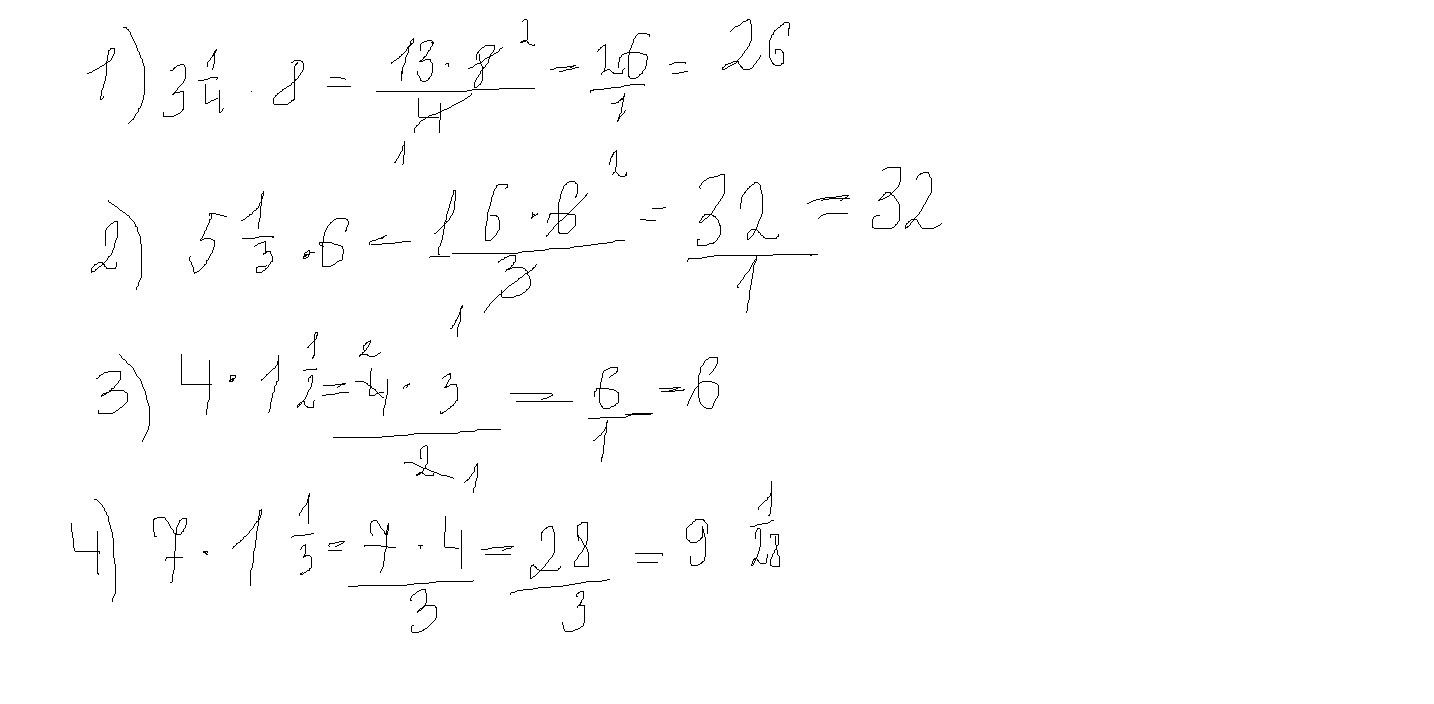 1) 3 1/4 · 8 = 13 · 8 2 / 4 1 = 26/1 = 26
2) 5 1/3 · 6 = 16 · 6 2 / 3 1 = 32/1 = 32
3) 4 · 1 1/2 = 2 4 · 3 / 2 1 = 6/1 = 6
4) 7 · 1 1/3 = 7 · 4 / 3 = 28/3 = 9 1/28